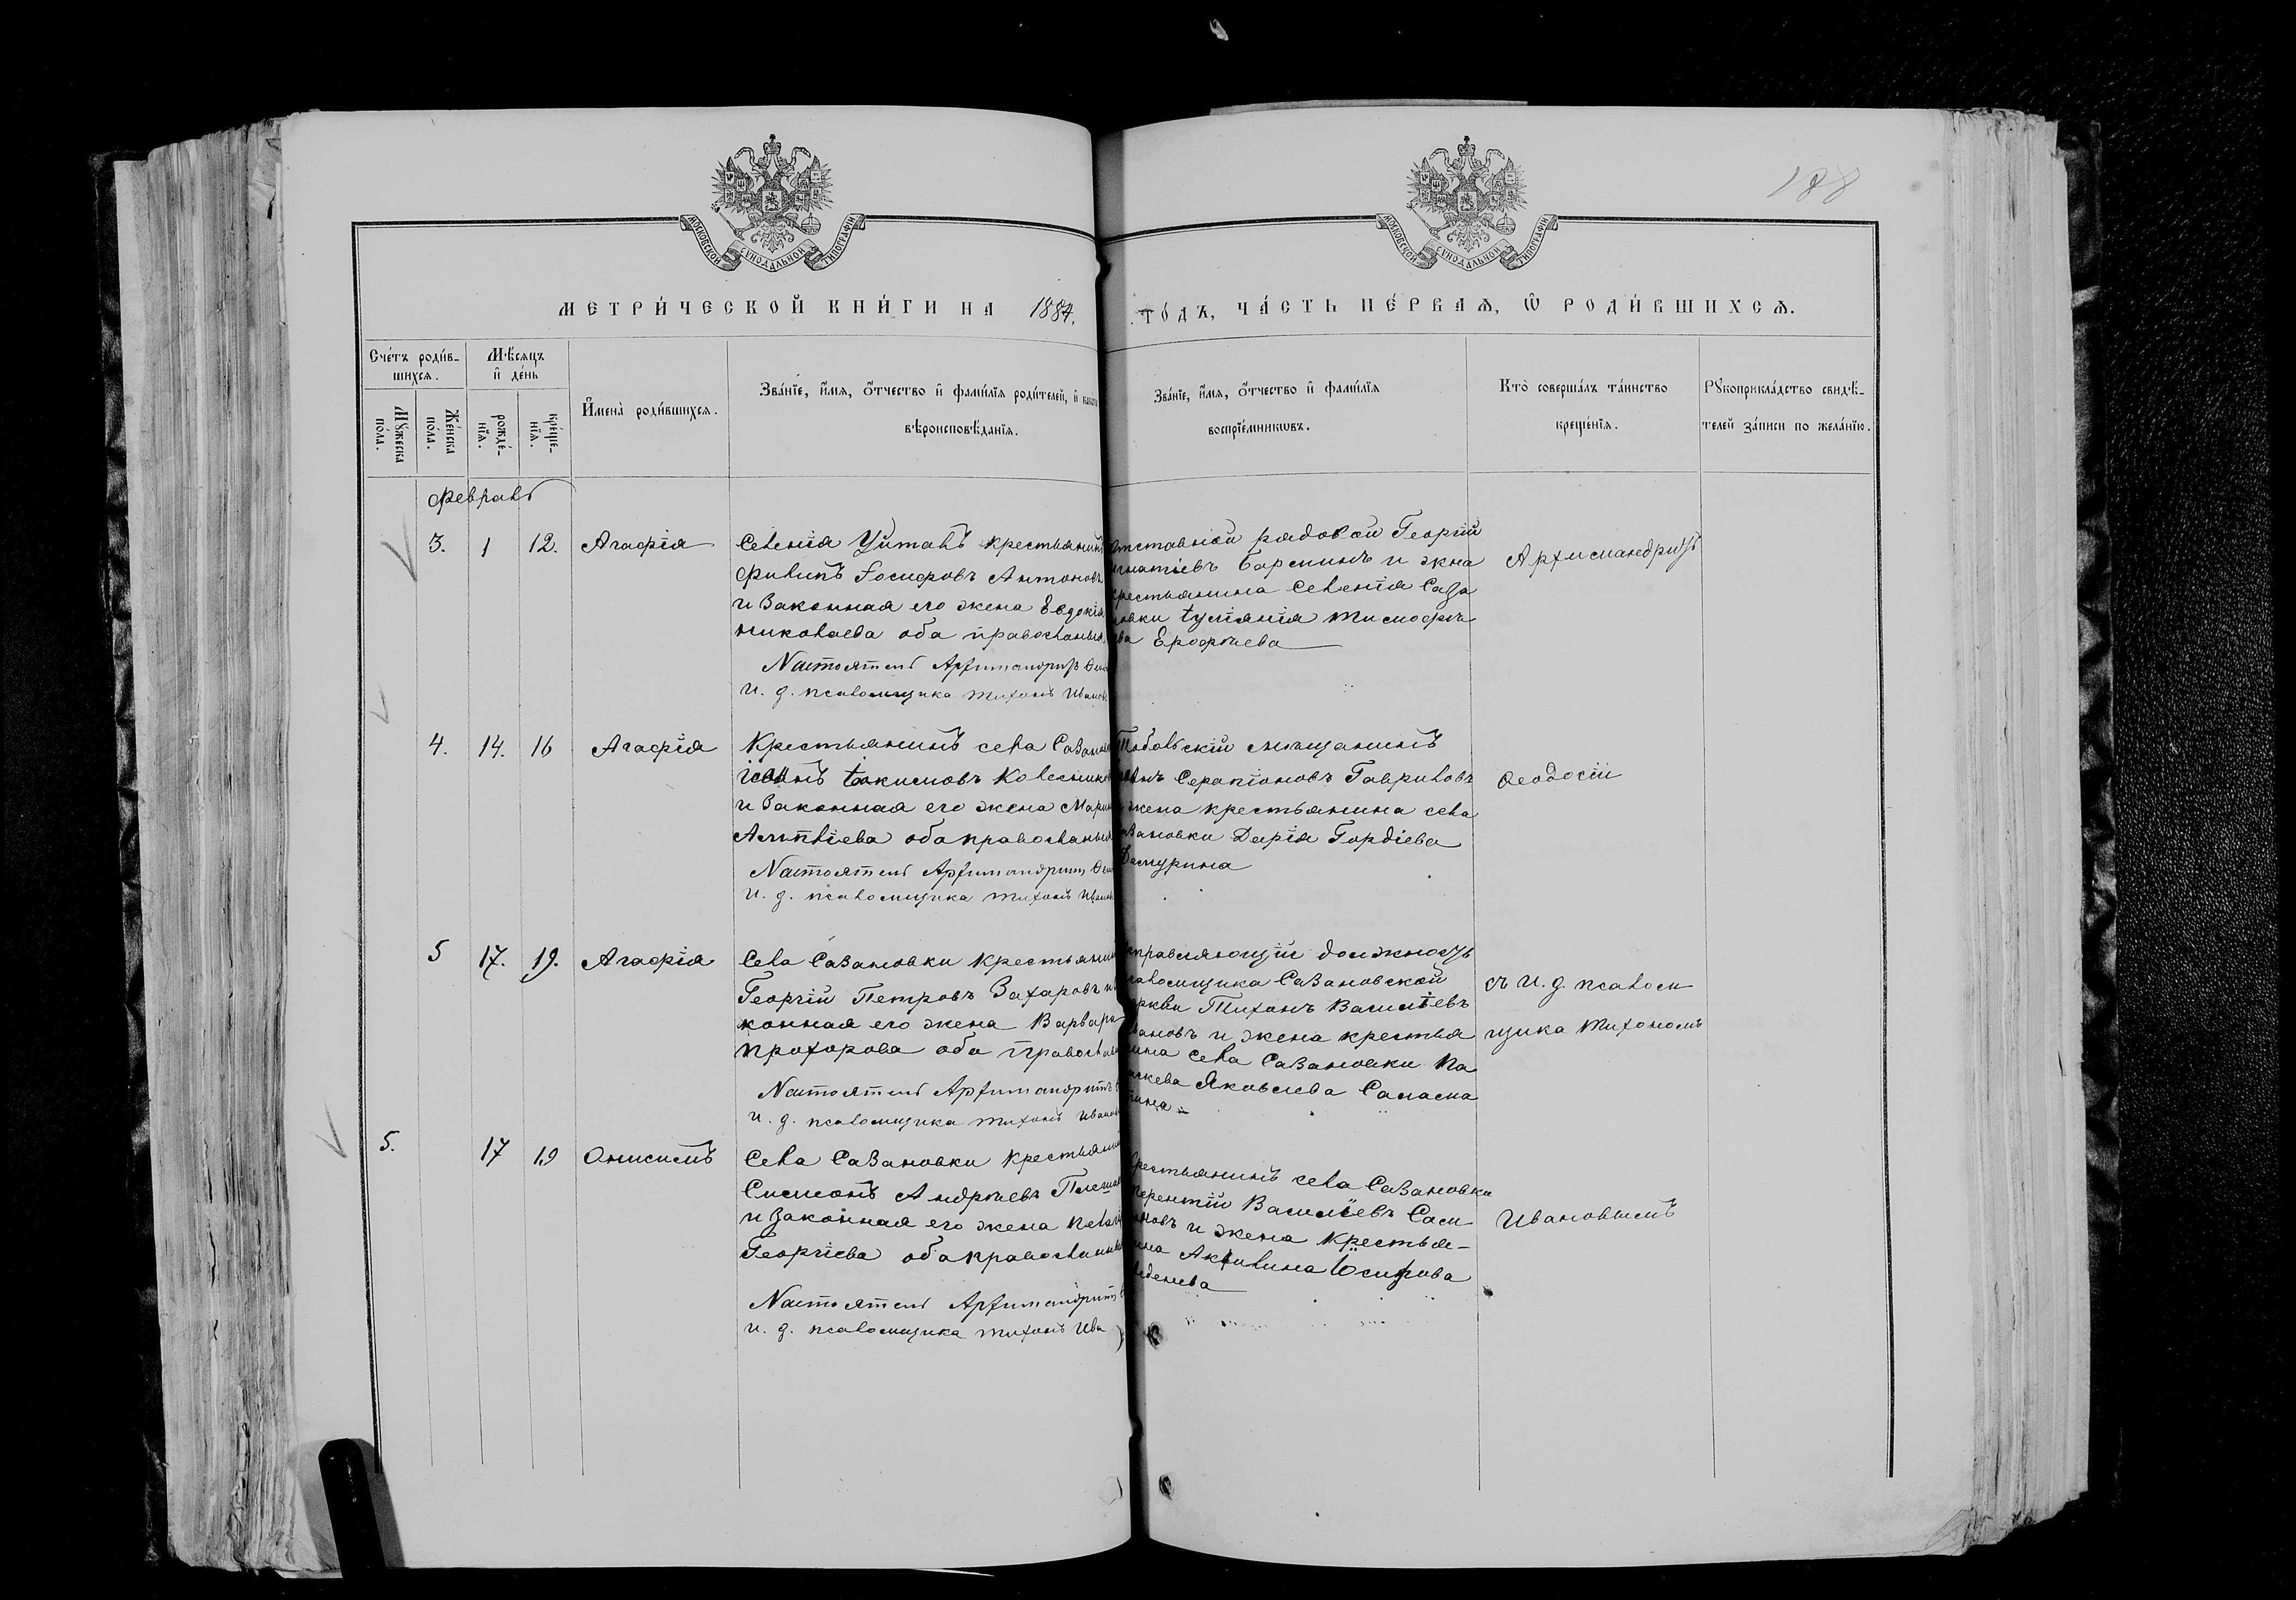 188
МОСКОВСКОЙ СѴНОДАЛЬНОЙ ТИПОГРАФІИ
МОСКОВСКОЙ СѴНОДАЛЬНОЙ ТИПОГРАФІИ
МЕТРИ́ЧЕСКОЙ КНИ́ГИ НА 1884. ГО́ДЪ, ЧА́СТЬ ПЕ́РВАѦ, Ѡ҆ РОДИ́ВШИХСѦ.
Сче́тъ роди́в-
шихсѧ.
Мꙋжеска
по́ла.
Же́нска
по́ла.
Мѣ́сяцъ
и҆ де́нь
рожде́-
нїѧ.
креще́-
нїѧ.
И҆мена̀ роди́вшихсѧ.
Зва́нїе, и҆́мѧ, ѻ҆́тчество и҆ фами́лїѧ роди́телей, и҆ како́гѡ
вѣроисповѣ́данїѧ.
Зва́нїе, и҆́мѧ, ѻ҆́тчество и҆ фами́лїѧ
воспрїе́мникѡвъ.
Кто̀ соверша́лъ та́инство
креще́нїѧ.
Рꙋкоприкла́дство свидѣ́-
телей за́писи по жела́нїю.
Февраль
3. 1 12. Агафія
Селенія Уйталъ крестьянинъ
Филипъ Іосифовъ Антоновъ
и законная его жена Евдокія
Николаева оба православныя
Настоятель Архимандритъ
И. д. псаломщика Тихонъ Иванов
отставной рядовой Георгій
Игнатіевъ и жена
крестьянина Селенія Саза
новки Іуліянія Тимофѣ
ева Ерофѣева
Архимандритъ
4. 14. 16 Агафія
Крестьянинъ села Сазанов
Іоаннъ Іакимовъ Колесников
и законная его жена Мари
оба православныя
Настоятель Архимандрит
И. д. псаломщика Тихонъ Иванов
Тобольскій мѣщанинъ
Серапіоновъ Гавриловъ
и жена крестьянина села
Сазановки Дарія Гордіева
Демурина
Феодосій
5 17. 19. Агафія
Села Сазановки крестьянин
Георгій Петровъ Захаровъ и
конная его жена Варвара
Прохорова оба православ
Настоятель Архимандритъ
И. д. псаломщика Тихонъ Иванов
Исправляющій должность
псаломщика Сазановской
церкви Тихонъ Василіевъ
Ивановъ и жена крестья
нина села Сазановки Па
раскева Яковлева
съ И. д. псалом
щика Тихономъ
5. 17 19 Онисимъ
Села Сазановки крестьянин
Симеонъ Андрѣевъ
и законная его жена Пелагі
Георгіева оба православны
Настоятель Архимандритъ
И. д. псаломщика Тихонъ Ива
крестьянинъ села Сазановки
Терентій Василіевъ Сам
и жена крестья-
нина Акилина Іосифова
Ивановымъ